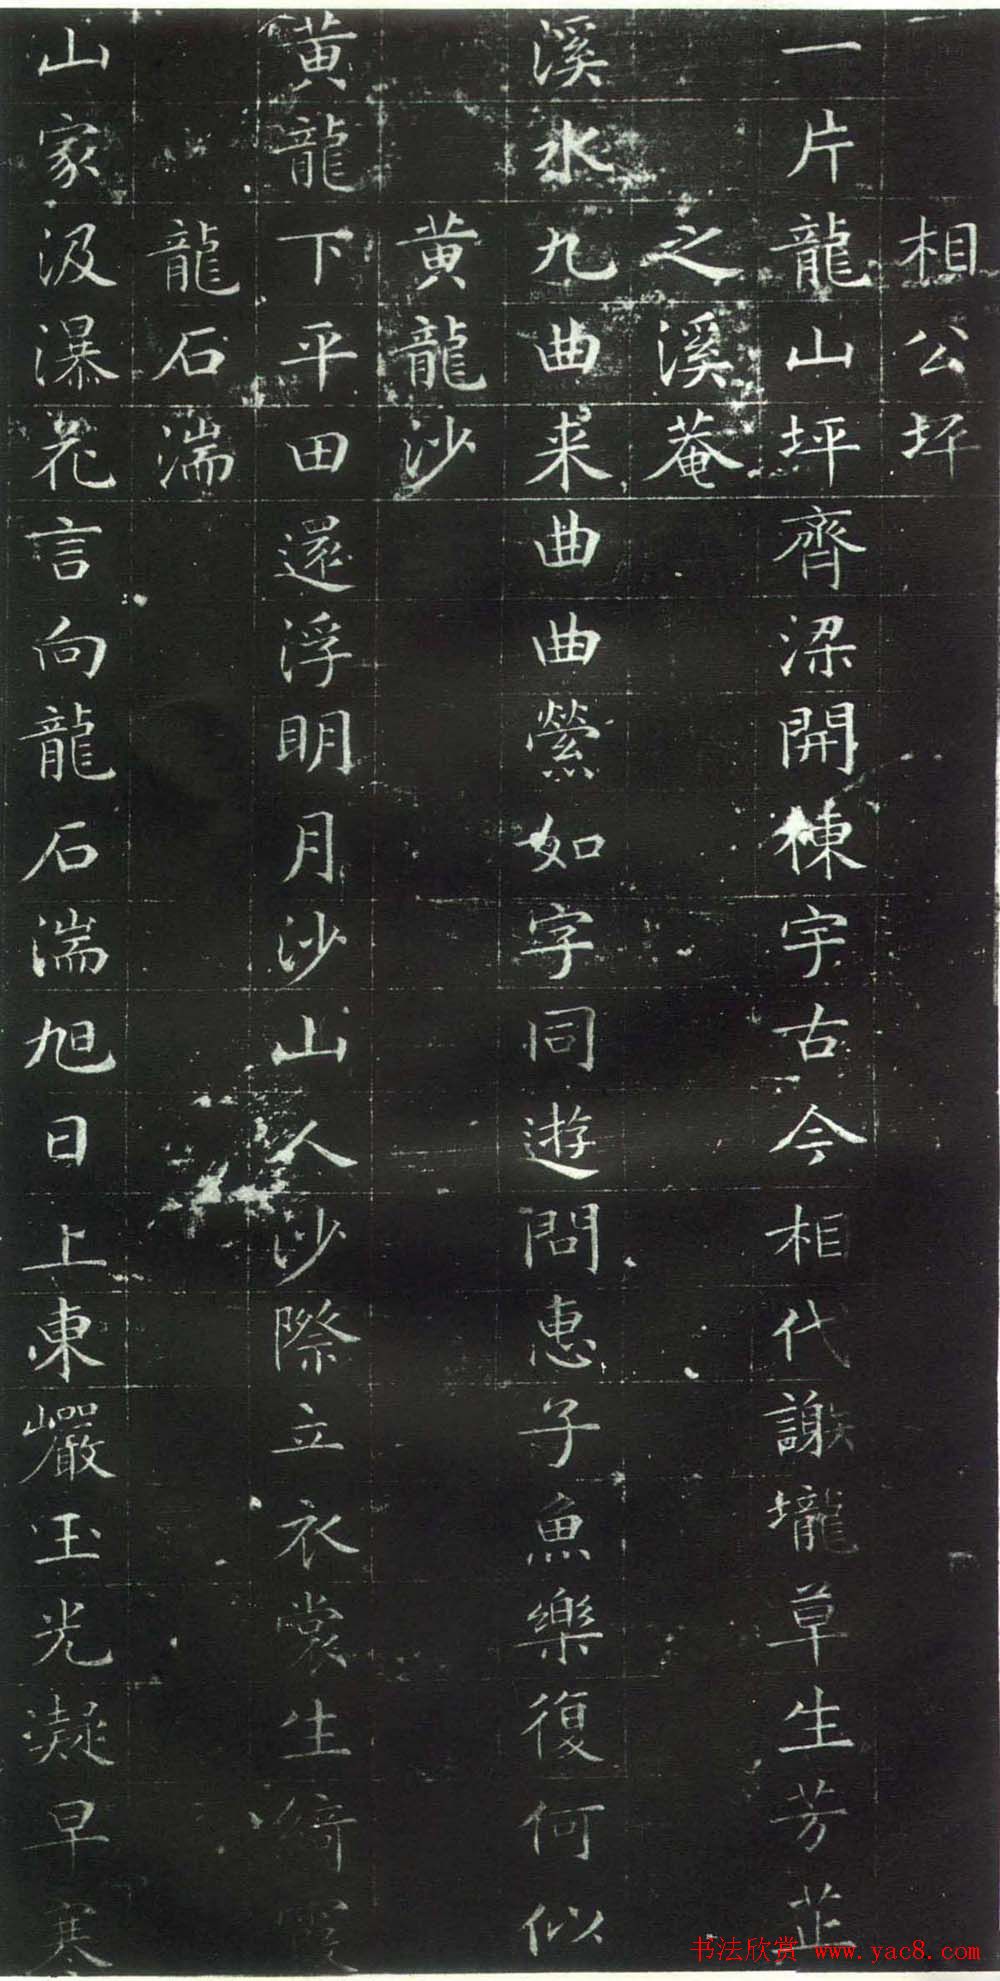 相公坪
一片龍山坪齊梁開棟宇古今相代謝壠草生芳芷
之溪菴
溪水九曲来曲曲縈如字同遊問惠子魚樂復何似
黄龍沙
黄龍下平田還浮明月沙山人沙際立衣裳生綺霞
龍石湍
山家汲瀑花言向龍石湍旭日上東巖玉光凝早寒
书法欣赏 www.yac8.com